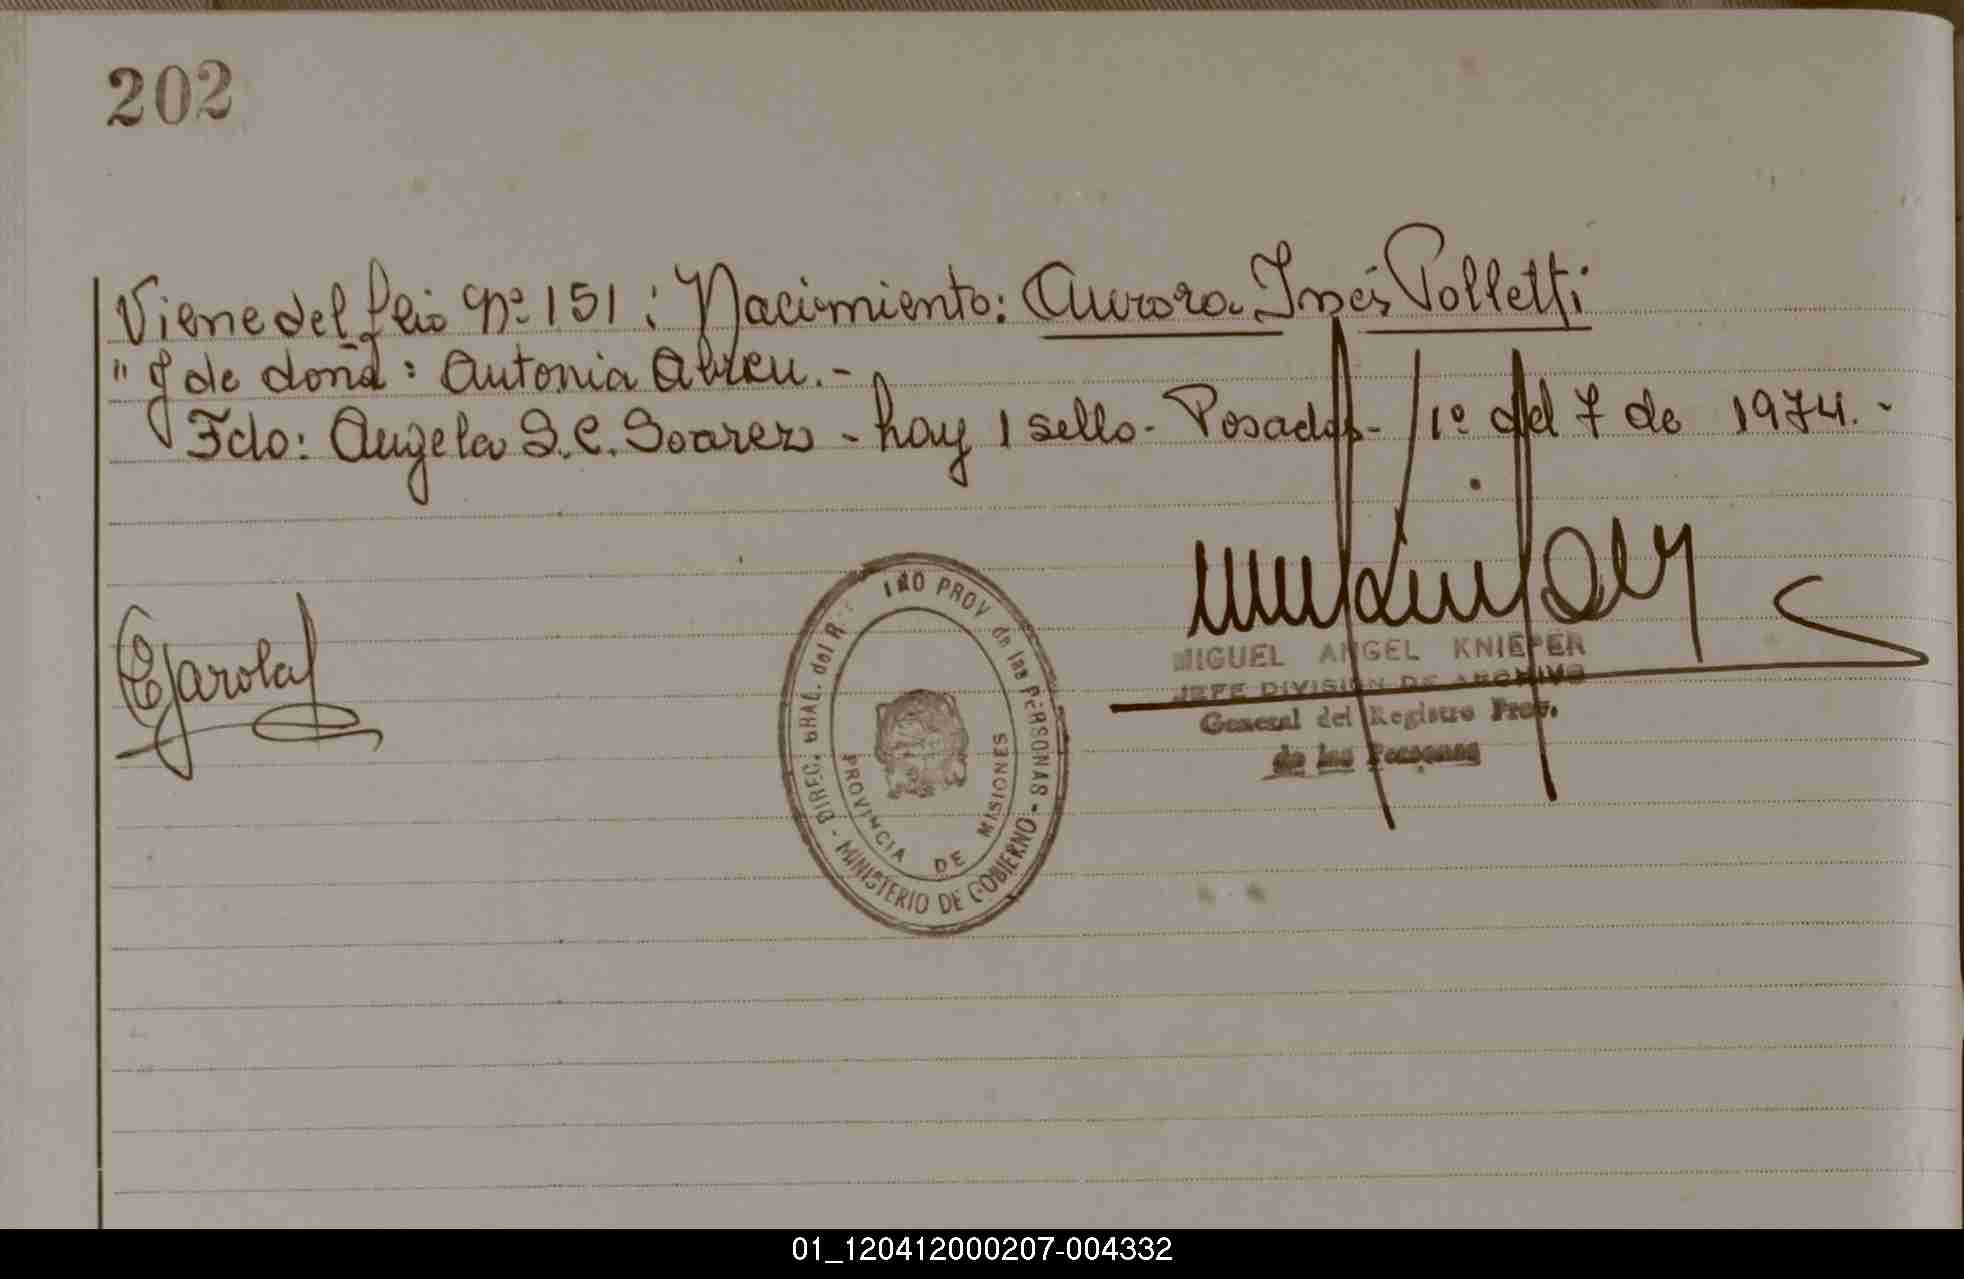 202
Viene del fcio Nº 151 : Nacimiento: Aurora Inés Polletti
" y de doña : Antonia Abreu.-
Fdo: Angela S. C. Soarez - hay 1 sello - Posadas - 1º del 7 de 1974.-
DIREC. GRAL. del R PROV de las PERSONAS - MINISTERIO DE GOBIERNO -
PROVINCIA DE MISIONES
MIGUEL ANGEL KNIEPER
JEFE DIVISION DE ARCHIVO
General del Registro Prov.
de las Personas
01_120412000207-004332